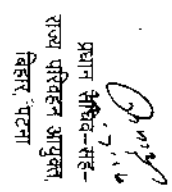 प्रधान सचिव-सह-
राज्य परिवहन आयुक्त,
बिहार, पटना